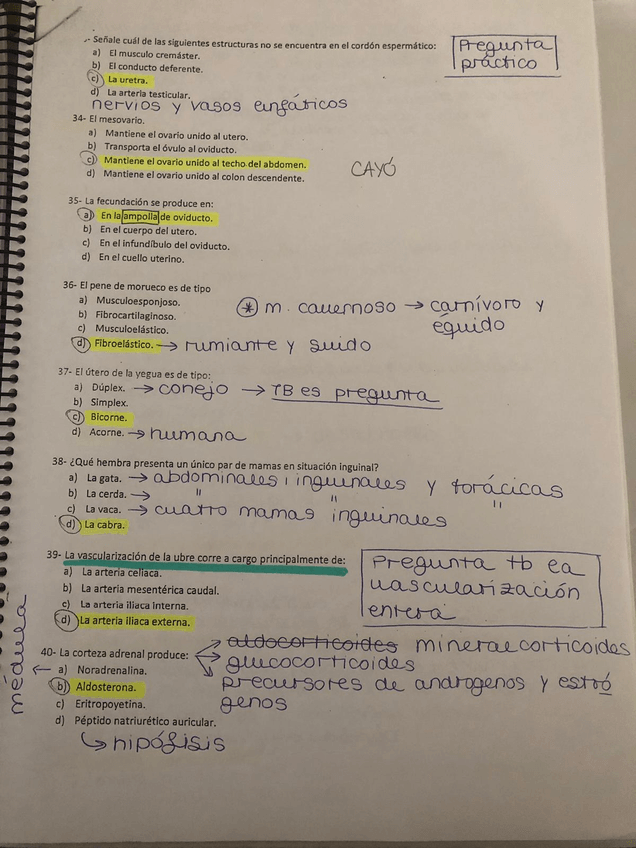 .- Señale cuál de las siguientes estructuras no se encuentra en el cordón espermático:
a) El musculo cremáster.
b) El conducto deferente.
c) La uretra.
d) La arteria testicular.
Pregunta
práctico
nervios y vasos linfáticos
34- El mesovario.
a) Mantiene el ovario unido al utero.
b) Transporta el óvulo al oviducto.
c) Mantiene el ovario unido al techo del abdomen.
d) Mantiene el ovario unido al colon descendente.
CAYÓ
35- La fecundación se produce en:
a) En la ampolla de oviducto.
b) En el cuerpo del utero.
c) En el infundíbulo del oviducto.
d) En el cuello uterino.
36- El pene de morueco es de tipo
a) Musculoesponjoso.
b) Fibrocartilaginoso.
c) Musculoelástico.
d) Fibroelástico. → rumiante y suido
* m. cavernoso → carnívoro y
équido
37- El útero de la yegua es de tipo:
a) Dúplex. → conejo → TB es pregunta
b) Simplex.
c) Bicorne.
d) Acorne. → humana
38- ¿Qué hembra presenta un único par de mamas en situación inguinal?
a) La gata. → abdominales, inguinales y torácicas
b) La cerda. → " " "
c) La vaca. → cuatro mamas inguinales
d) La cabra.
39- La vascularización de la ubre corre a cargo principalmente de:
a) La arteria celiaca.
b) La arteria mesentérica caudal.
c) La arteria iliaca Interna.
d) La arteria iliaca externa.
Pregunta tb la
vascularización
entera
40- La corteza adrenal produce: → aldocorticoides mineralcorticoides
→ glucocorticoides
→ precursores de androgenos y estró
genos
médula ← a) Noradrenalina.
b) Aldosterona.
c) Eritropoyetina.
d) Péptido natriurético auricular.
↳ hipófisis